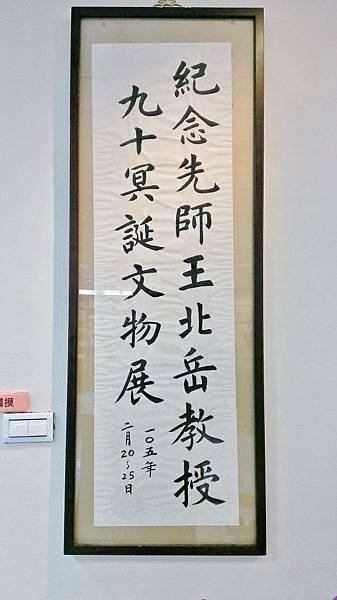 紀念先師王北岳教授
九十冥誕文物展
一〇五年
二月20~25日
摸